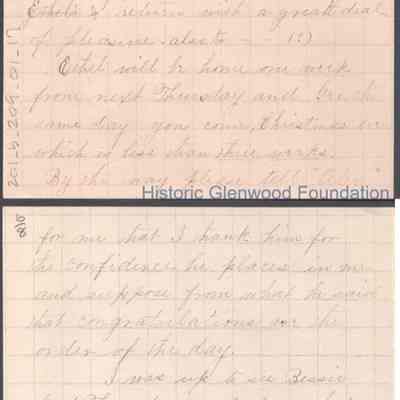 Ethel's & return with a great deal
of pleasure also to - - (?)
Ethel will be home one week
from next Thursday and Fred the
same day you come, Christmas eve
which is less than three weeks.
By the way please tell
201-b-209-01-17
Historic Glenwood Foundation
8/15
for me that I thank him for
the confidence he places in me
and suppose from what he said
that congratulations are the
order of the day.
I was up to see Bessie